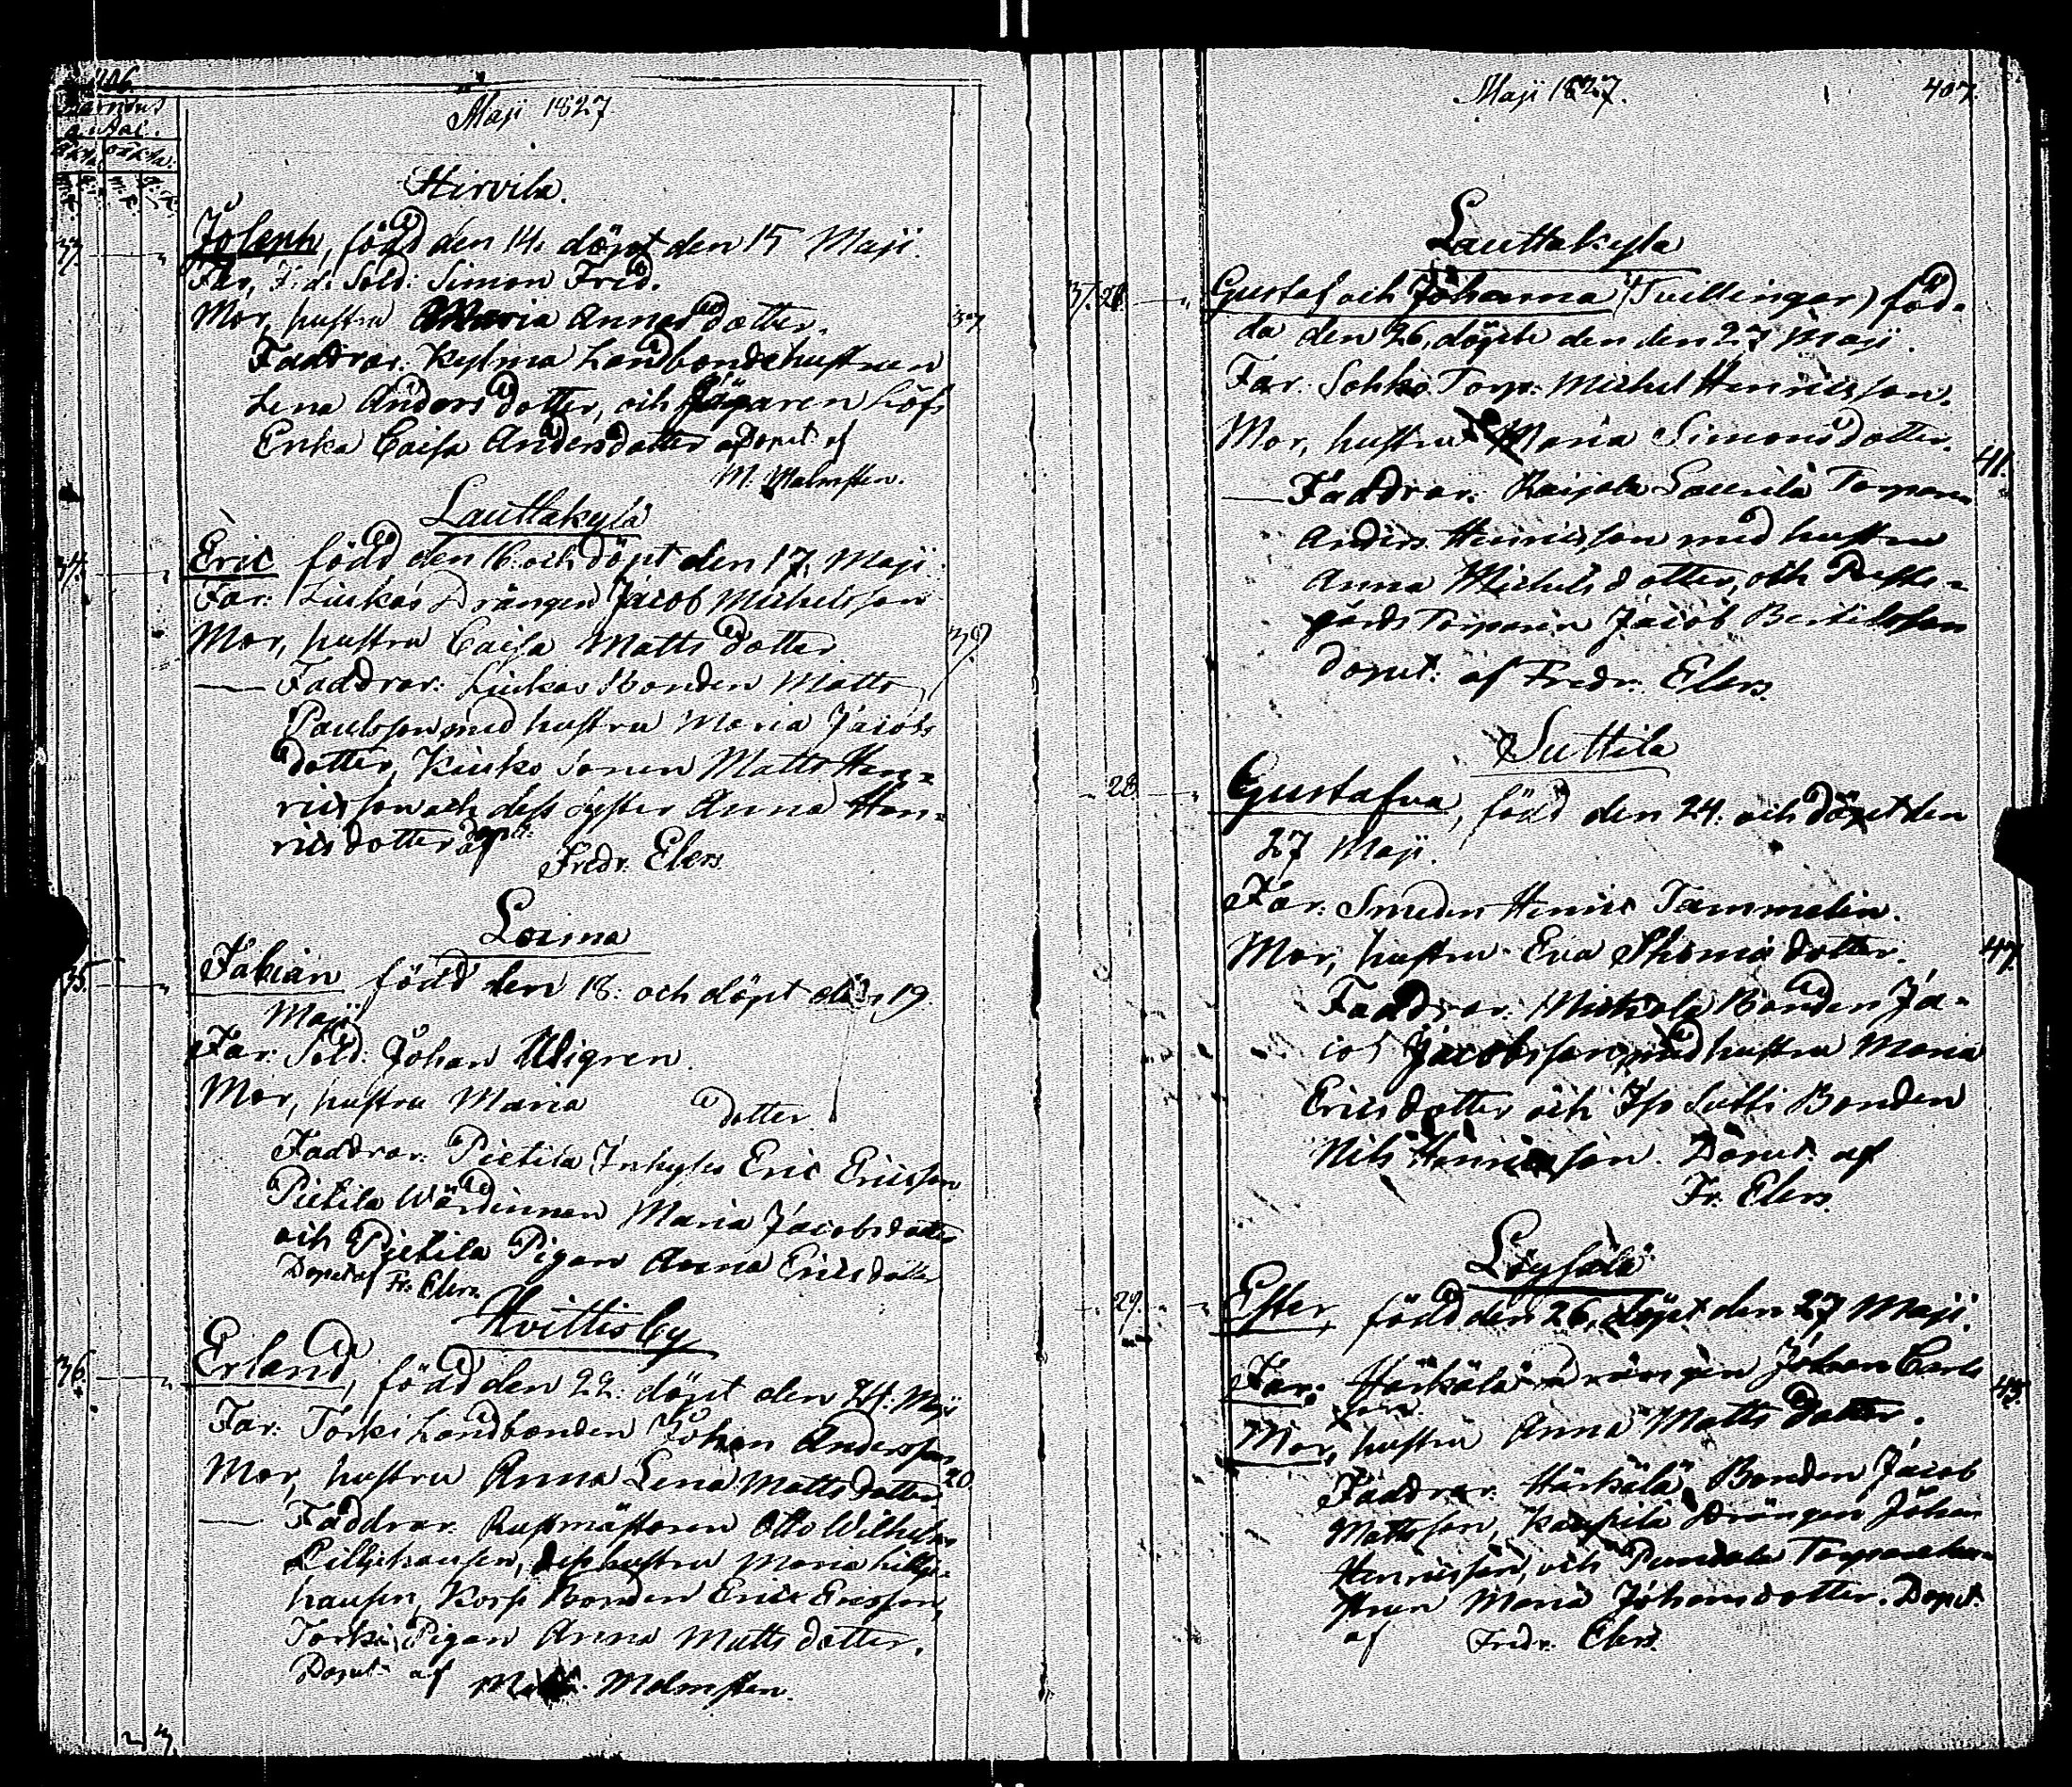 406.
Barnens
antal.
äkta oäkta.
Maji 1827
Hirvila.
33.
Joseph, född den 14. döpt den 15 Maji.
Far, Sold: Simon Fred.
Mor, hustru Maria Anders dotter.
37
Faddrar: Kylma Landbondehustrun
Lena Anders dotter, och
Erika Caisa Andersdotter Döpt af
M. Malmsten.
Lauttakylä
34.
Eric född den 16. och döpt den 17. Maji
Far: Liukas Drängen Jacob Michelsson
Mor, hustru Caisa Matts dotter
39
Faddrar: Liukas Bonden Matts
Paulsson med hustru Maria Jacobs
dotter, Kiukas Sonen Matts Hen=
ricsson och dess syster Anna Hen=
rics dotter döpt af
Fredr. Elers.
Loima
35.
Fabian född den 18. och döpt den 19.
Maji
Far: Sold: Johan Wigren.
Mor, hustru Maria dotter
Faddrar: Pietila Inhyses Eric Ericsson
Pietila Wärdinnan Maria Jacobsdotter
och Pietila Pigan Anna Ericsdotter
Döpt af Fr. Elers.
Hvittisby
36.
Erland, född den 22. döpt den 24. Maji
Far: Torki Landbonden Johan Andersson
Mor, hustru Anna Lena Matts dotter
20
Faddrar: Rustmästaren Otto Wilhelm
Lilljehausen, dess hustru Maria Lillje=
hausen, Korpi Bonden Eric Ericsson,
Torki Pigan Anna Matts dotter.
Döpt af M. Malmsten.
Maji 1827.
407.
Lauttakyla
37. 27.
Gustaf och Johanna (Tvillingar) föd=
da den 26, döpte den 27 Maji.
Far: Sohko Torp: Michel Henricsson.
Mor, hustru Maria Simonsdotter.
41.
Faddrar: Raijala Laurila Torparen
Anders Henricsson med hustru
Anna Michelsdotter, och Prest=
gårds Torparen Jacob Bertilsson
Döpt: af Fredr. Elers.
Suttila
28.
Gustafva, född den 24. och döpt den
27 Maji.
Far: Smeden Henric Tammelin.
Mor, hustru Eva Thomas dotter.
47.
Faddrar: Michola Bonden Ja=
cob Jacobsson, med hustru Maria
Ericsdotter och Iso Sutti Bonden
Nils Henricsson. Döpt: af
Fr. Elers.
Löysälä
29.
Ester, född den 26, döpt den 27 Maji.
Far: Härkälä drängen Johan Carls
son.
Mor, hustru Anna Matts dotter.
43.
Faddrar: Härkälä Bonden Jacob
Mattsson, Kaupila Drängen Johan
Henricsson, och Pundala Torparehu=
strun Maria Johansdotter. Döpt:
af Fredr. Elers.